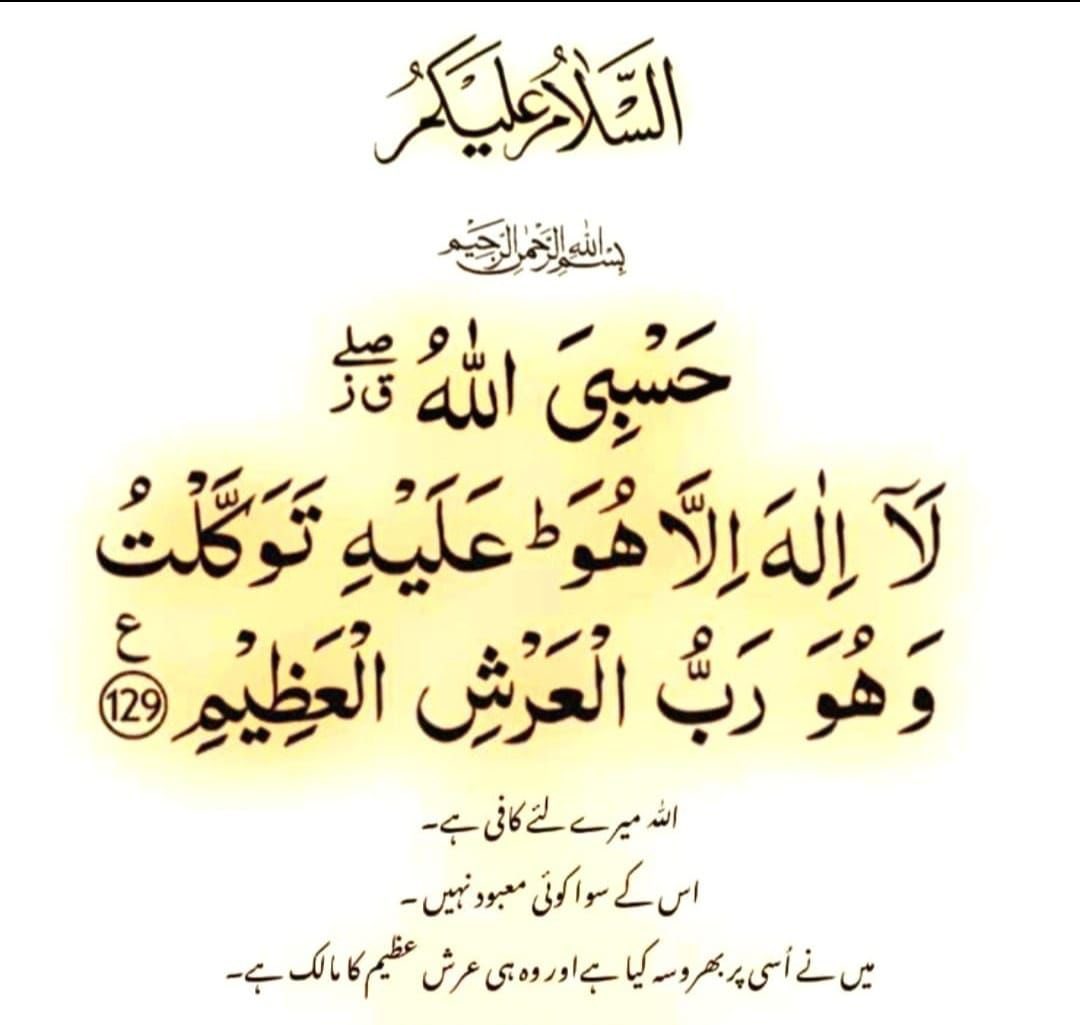 اَلسَّلَامُ عَلَیْکُمْ
بِسْمِ اللهِ الرَّحْمٰنِ الرَّحِیْمِ
حَسْبِیَ اللّٰهُ ۖ ق ز
لَاۤ اِلٰهَ اِلَّا هُوَ ؕ عَلَیْهِ تَوَكَّلْتُ
وَ هُوَ رَبُّ الْعَرْشِ الْعَظِیْمِ ع 129
اللہ میرے لئے کافی ہے۔
اس کے سوا کوئی معبود نہیں۔
میں نے اُسی پر بھروسہ کیا ہے اور وہ ہی عرش عظیم کا مالک ہے۔